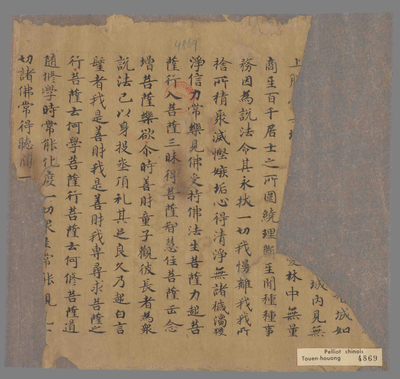 4869
城如
城內見無
上勝 林中無量
商𤯔百千居士之所圍繞理斷𤯔間種種事
務因為說法令其永拔一切我慢離我我所
捨所積聚滅慳嫉垢心得清淨無諸穢濁獲
淨信力常樂見佛受持佛法生菩薩力起菩
薩行入菩薩三昧得菩薩智慧住菩薩𠙺念
增菩薩樂欲尒時善財童子觀彼長者為衆
說法已以身投埊頂礼其足良久乃起白言
者我是善財我是善財我專尋求菩薩之
行菩薩云何學菩薩行菩薩云何修菩薩道
隨修學時常能化度一切衆生常能現見一
切諸佛常得聽聞一
Pelliot chinois
Touen-houang 4869